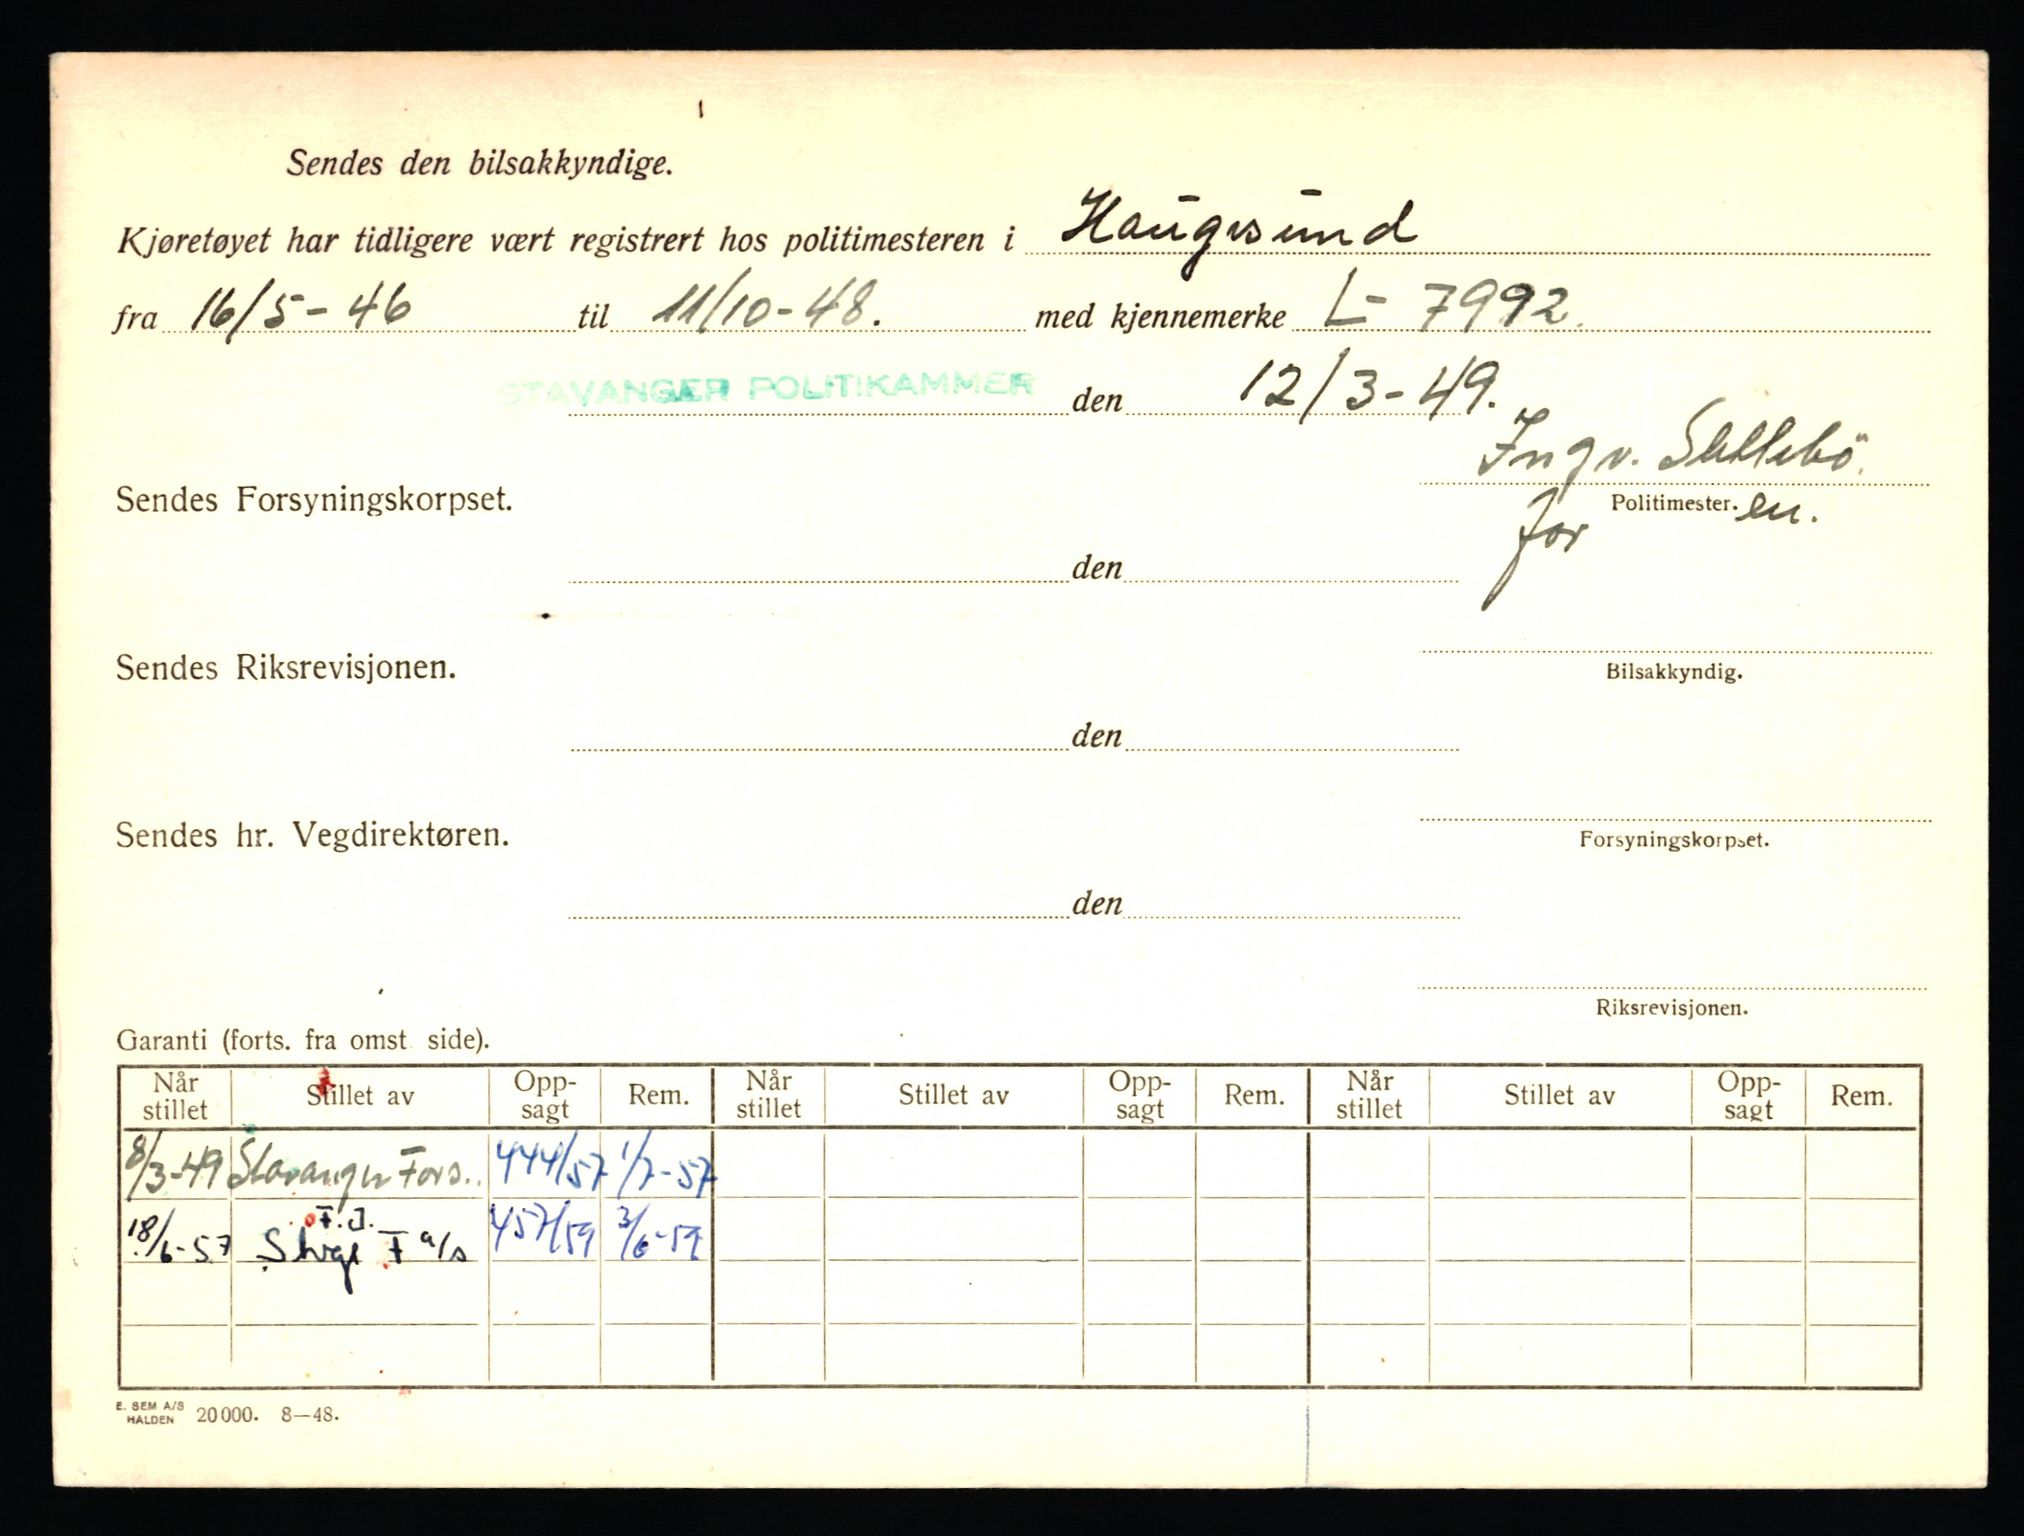 Sendes den bilsakkyndige.
Kjøretøyet har tidligere vært registrert hos politimesteren i Haugesund
fra 16/5-46 til 11/10-48. med kjennemerke L-7992.
STAVANGER POLITIKAMMER den 12/3-49.
Ingv.
Sendes Forsyningskorpset.
Politimester.en.
for
den
Sendes Riksrevisjonen.
Bilsakkyndig.
den
Sendes hr. Vegdirektøren.
Forsyningskorpset.
den
Riksrevisjonen.
Garanti (forts. fra omst. side).
Når stillet Stillet av Opp-sagt Rem. Når stillet Stillet av Opp-sagt Rem. Når stillet Stillet av Opp-sagt Rem.
8/3-49 Stavanger Fors.. 444/57 1/7-57
18/6-57 F a/s 457/59 3/6-59
E. SEM A/S HALDEN 20000. 8—48.